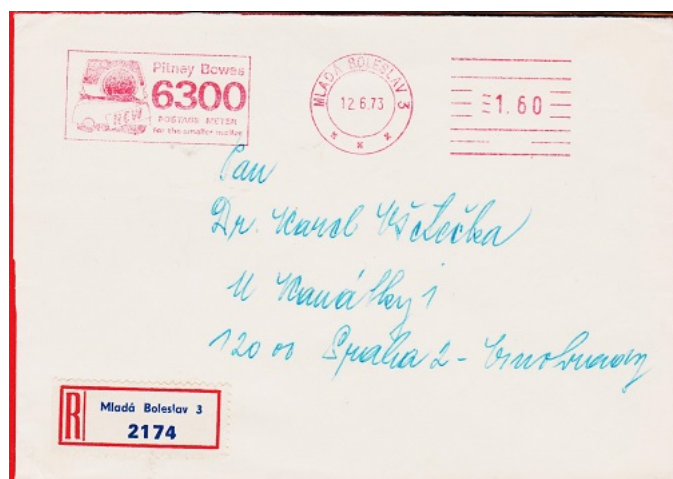 Pitney Bowes
6300
POSTAGE METER
for the smaller mailer
NEW
MLADÁ BOLESLAV 3
12.6.73
1.60
Pan
Dr. Karel
U Kanálky 1
120 00 Praha 2 -
R
Mladá Boleslav 3
2174